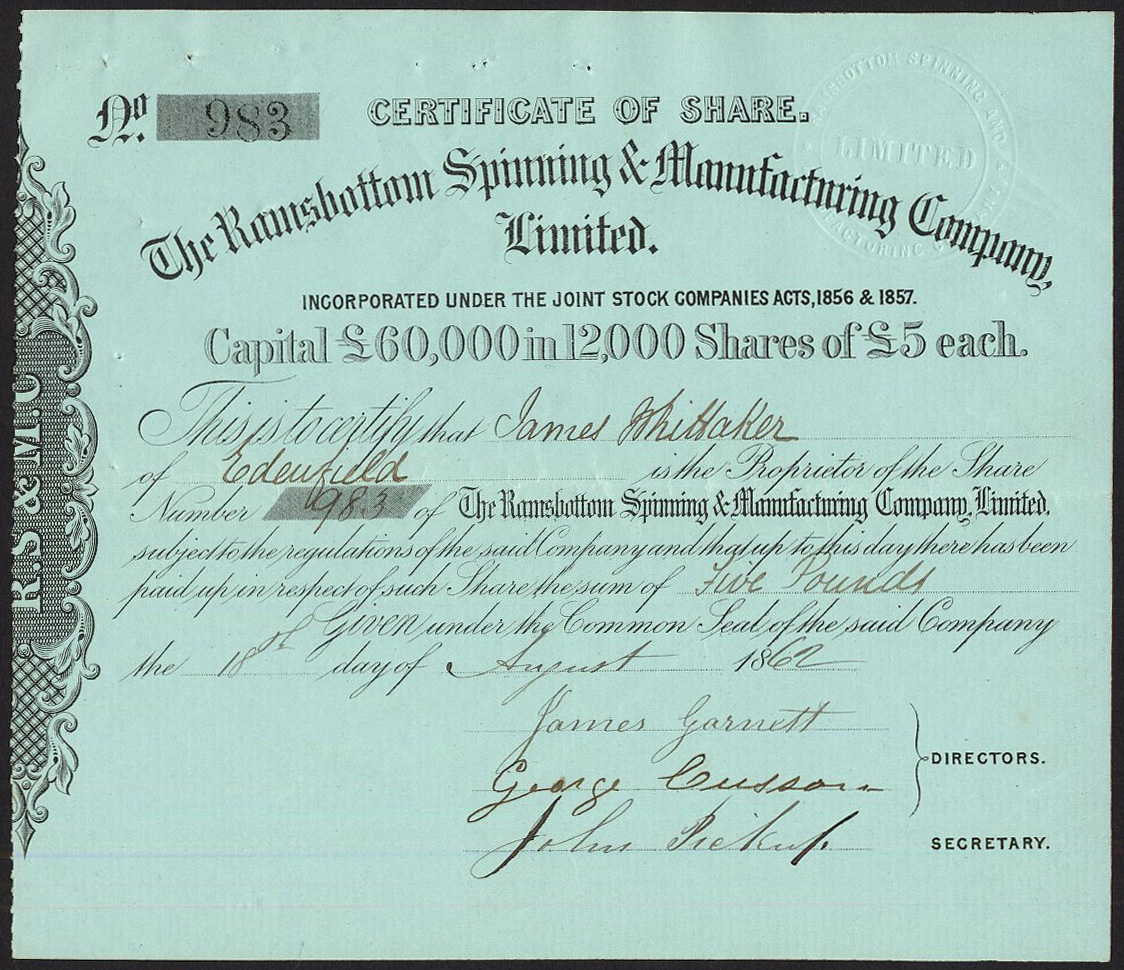 No. 983
CERTIFICATE OF SHARE.
The Ramsbottom Spinning & Manufacturing Company,
Limited.
INCORPORATED UNDER THE JOINT STOCK COMPANIES ACTS, 1856 & 1857.
Capital £60,000 in 12,000 Shares of £5 each.
This is to certify that James Whittaker
of Edenfield is the Proprietor of the Share
Number 983 of The Ramsbottom Spinning & Manufacturing Company, Limited,
subject to the regulations of the said Company and that up to this day there has been
paid up in respect of such Share the sum of Five Pounds
Given under the Common Seal of the said Company
the 18th day of August 1862
James Garnett
George Cusson
DIRECTORS.
John Pickup
SECRETARY.
R.S. & M.C
RAMSBOTTOM SPINNING AND MANUFACTURING
LIMITED